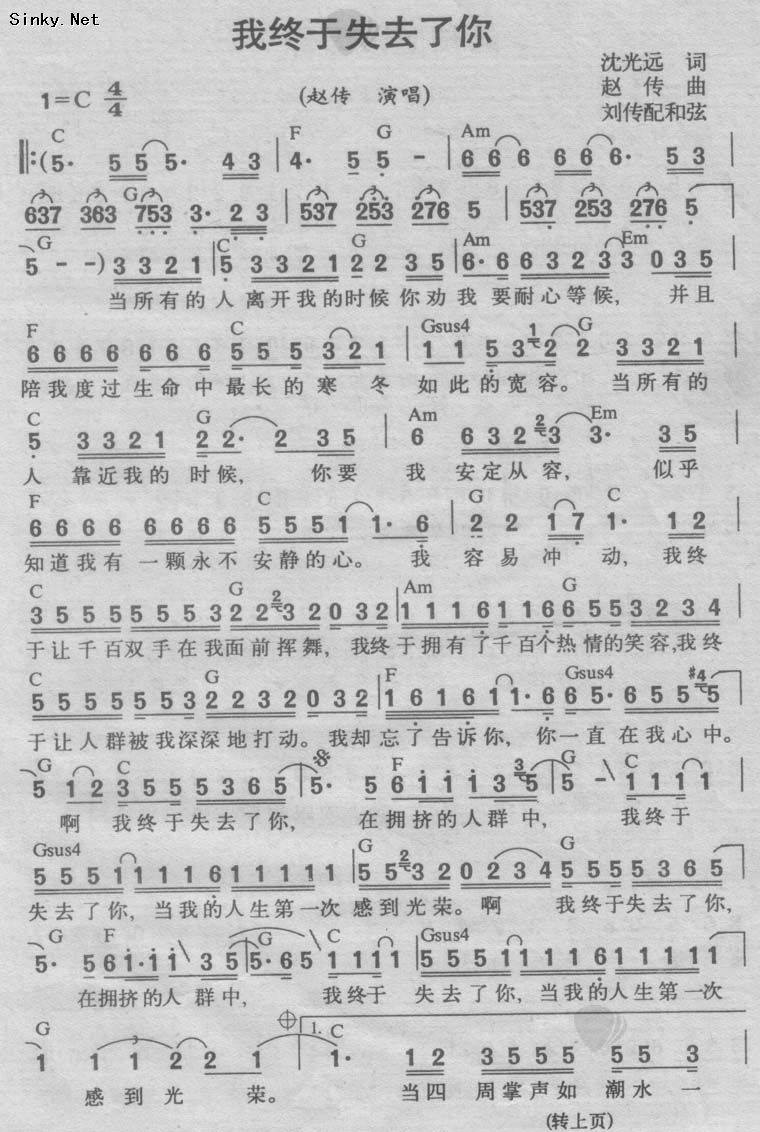 Sinky.Net
我终于失去了你
沈光远 词
1=C 4/4 (赵传 演唱) 赵 传 曲
刘传配和弦
C F G Am
5· 5 5 5· 4 3 4· 5 5 - 6 6 6 6 6 6· 5 3
G
637 363 753 3· 2 3 537 253 276 5 537 253 276 5
G C G Am Em
5 - -) 3 3 2 1 5 3 3 2 1 2 2 3 5 6· 6 6 3 2 3 3 0 3 5
当所有的人 离开我的时候你劝我 要耐心等候, 并且
F C Gsus4 G
6 6 6 6 6 6 6 5 5 5 3 2 1 1 1 5 3 2 2 3 3 2 1
陪我度过生命中最长的寒 冬 如此的宽容。 当所有的
C G Am Em
5 3 3 2 1 2 2· 2 3 5 6 6 3 2 3 3· 3 5
人 靠近我的 时候, 你要 我 安定从容, 似乎
F C G C
6 6 6 6 6 6 6 6 5 5 5 1 1· 6 2 2 1 7 1· 1 2
知道我有 一颗永不 安静的心。 我 容易冲 动,我终
C G Am G
3 5 5 5 5 5 5 3 2 2 3 2 0 3 2 1 1 1 6 1 1 6 6 5 5 3 2 3 4
于让千百双手在我面前挥舞, 我终于拥有了千百个热情的笑容,我终
C G F Gsus4
5 5 5 5 5 5 5 3 2 2 3 2 0 3 2 1 6 1 6 1 1· 6 6 5· 6 5 5 #4 5
于让人群被我深深地打动。我却忘了告诉你, 你一直在我心中。
G C F G C
5 1 2 3 5 5 5 3 6 5 5· 5 6 1 1 1 3 5 5 - 1 1 1 1
啊 我终于失去了你, 在拥挤的人群中, 我终于
Gsus4 G G
5 5 5 1 1 1 1 6 1 1 1 1 1 5 5 3 2 0 2 3 4 5 5 5 3 6 5
失去了你,当我的人生第一次 感到光荣。啊 我终于失去了你,
G F G C Gsus4
5· 5 6 1· 1 3 5 5· 6 5 1 1 1 1 5 5 5 1 1 1 1 6 1 1 1 1 1
在拥挤的人 群中, 我终于 失去了你,当我的人生第一次
G 1. C
1 1 1 2 2 1 1· 1 2 3 5 5 5 5 5 3
感到光 荣。 当四 周掌声如 潮水 一
(转上页)